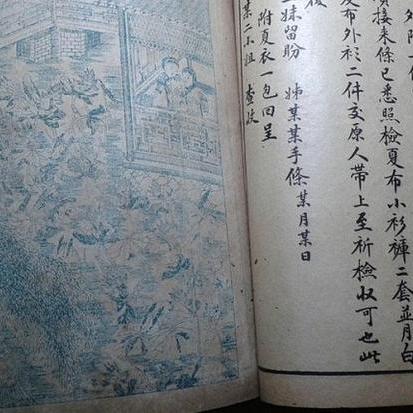 須接來條已悉照檢夏布小衫褲二套並月白
夏布外衫二件交原人帶上至祈檢收可也此
復
妹留盼 姊某某手條某月某日
附夏衣一包回呈
某二小姐 查收